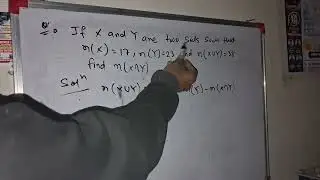 Q. If X and Y are two Sets Such that
n(X) = 17, n(Y) = 23 and n(X∪Y) = 38
find n(X∩Y)
Solⁿ n(X∪Y) - n(X∩Y)